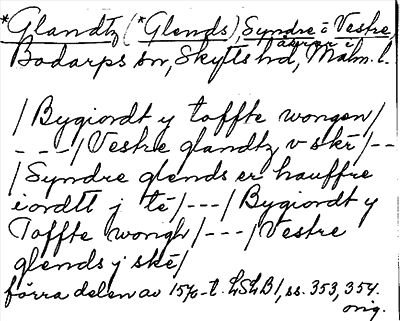 *Glandtz (*Glends), Syndre o Vestre,
åkrar i
Bodarps sn, Skytts hd, Malm. l.
/Bygiordt y toffte wongen/
---/Vestre glandtz v skè/--
/Syndre glends er hauffre
iordtt j tè/---/Bygiordt y
Toffte wongh/---/Vestre
glends j skè/
förra delen av 1570-t. LSLB1, ss. 353, 354.
orig.